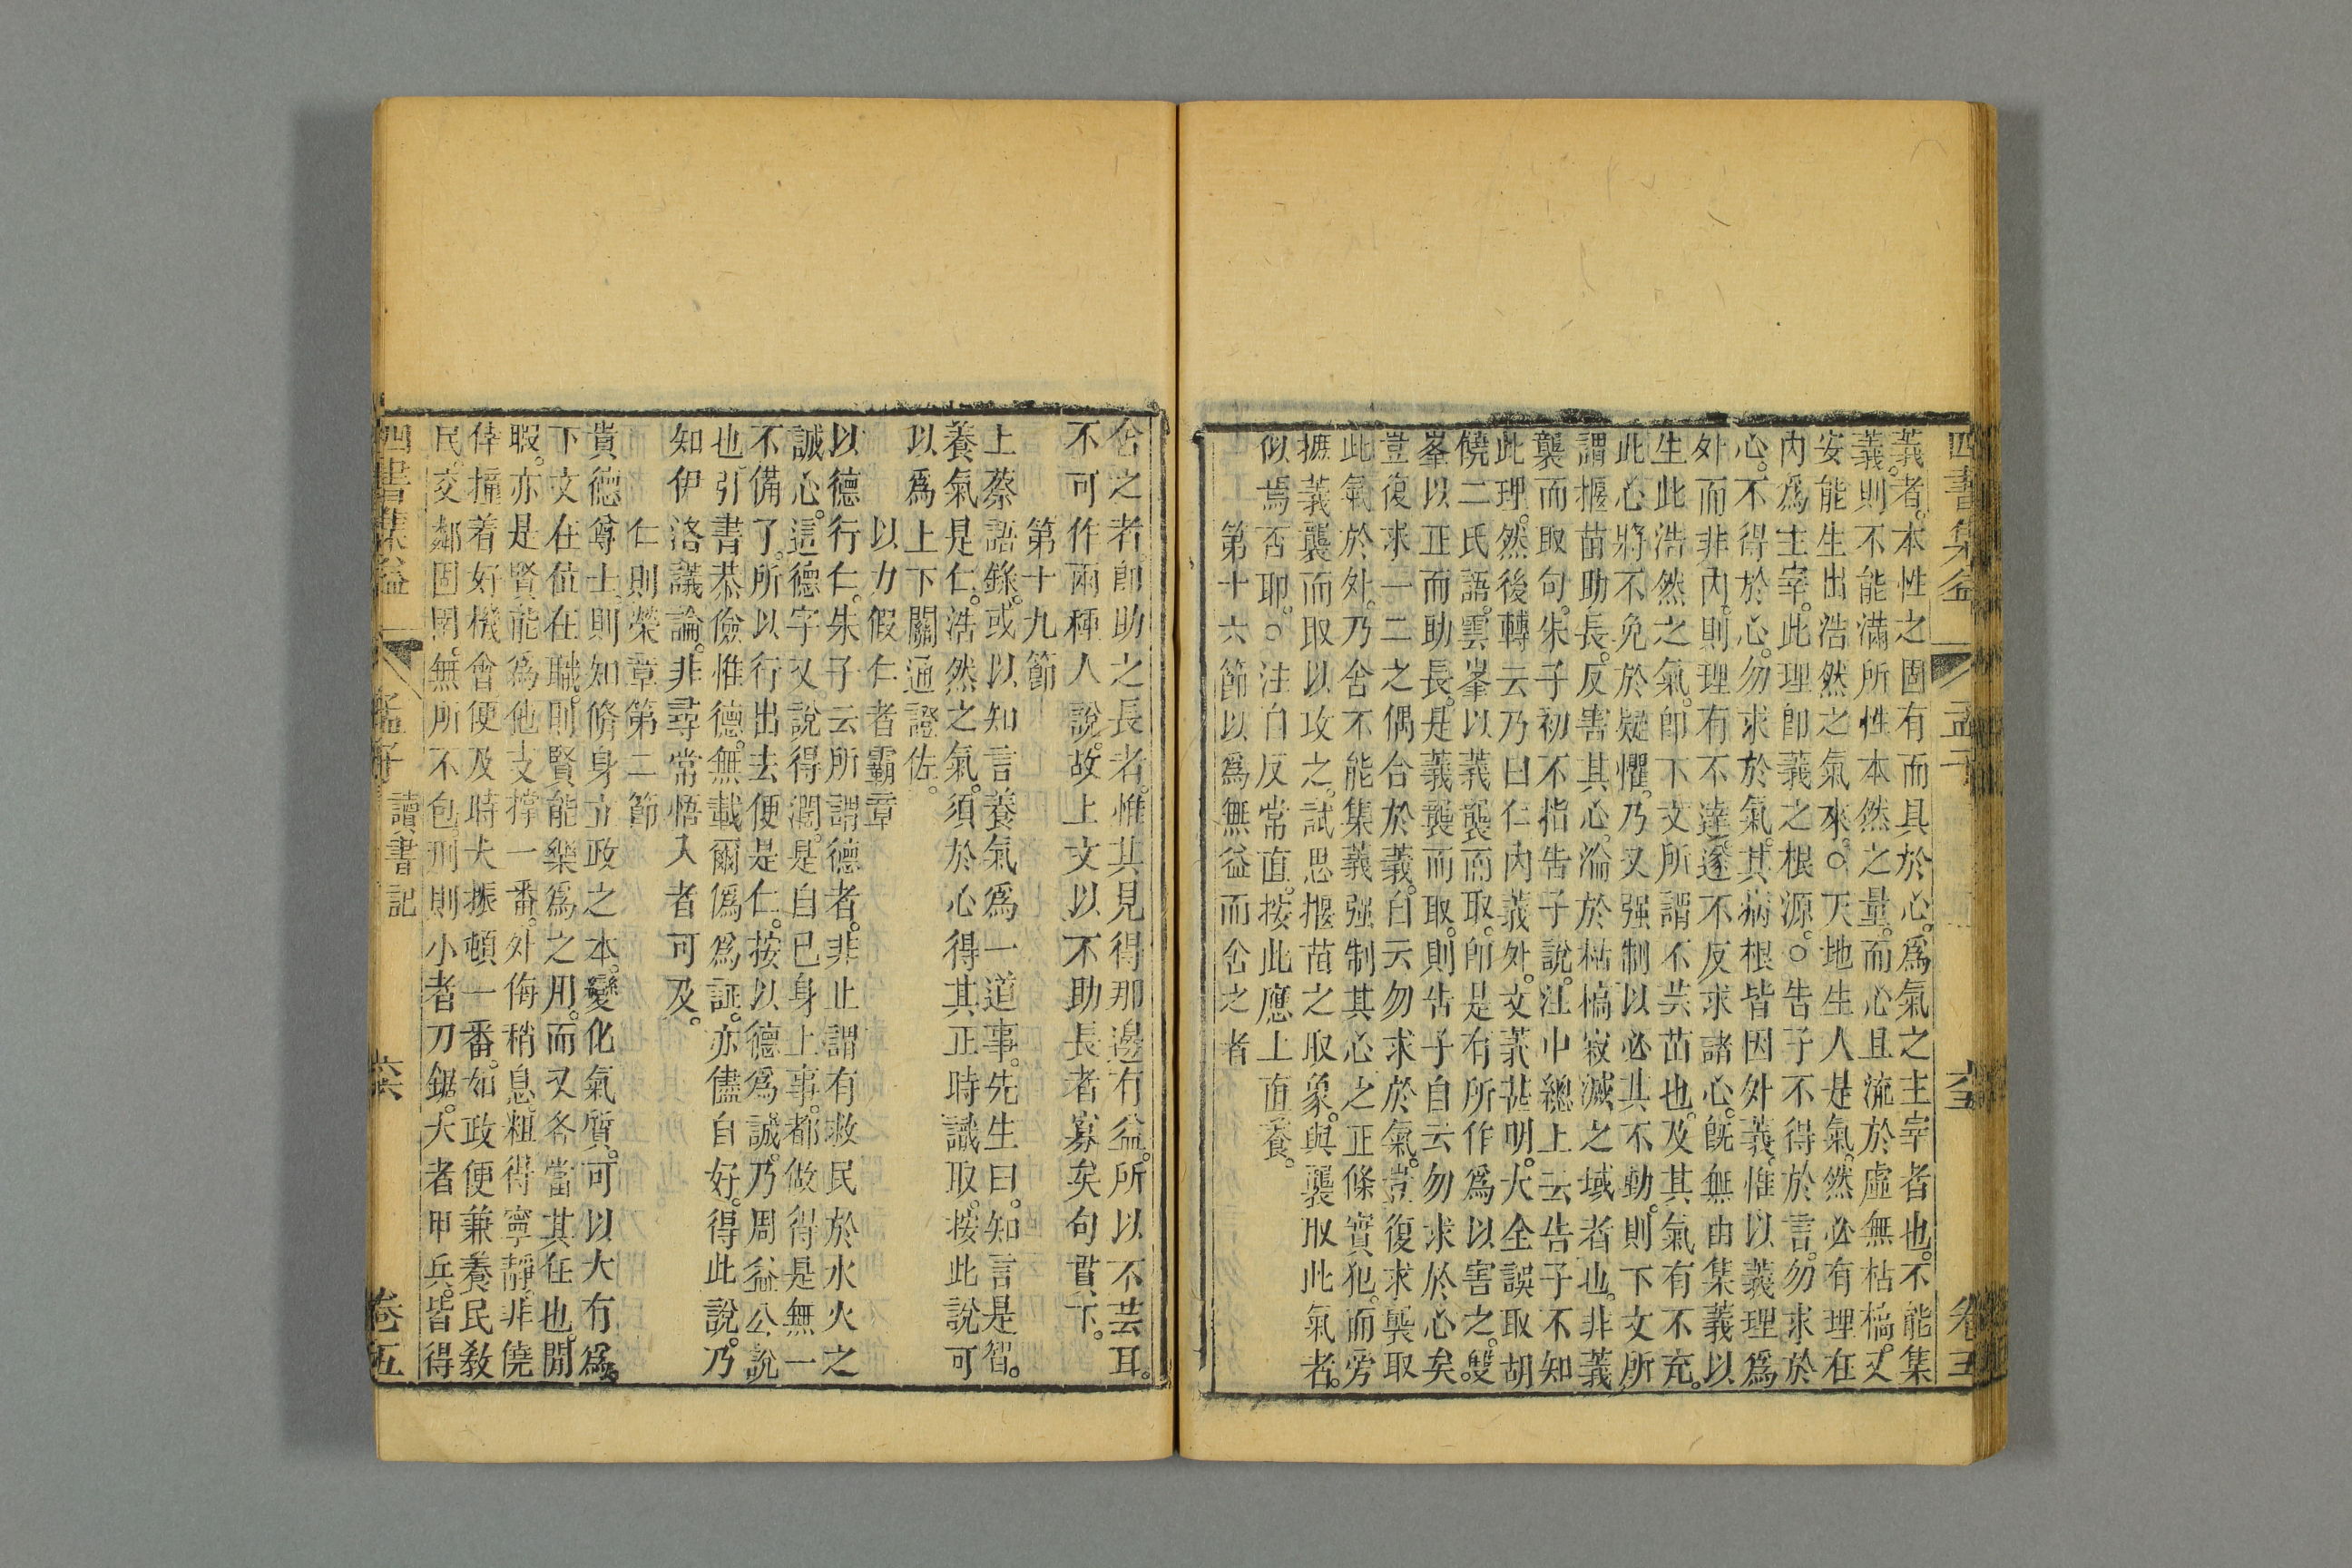 四書集益 孟子 卷五
義者。本性之固有而具於心。爲氣之主宰者也。不能集
義。則不能滿所性本然之量。而心且流於虛無枯槁。又
安能生出浩然之氣來。○天地生人是氣。然必有理在
內爲主宰。此理卽義之根源。○告子不得於言。勿求於
心。不得於心。勿求於氣。其病根皆因外義。惟以義理爲
外而非內。則理有不達。遂不反求諸心。旣無由集義以
生此浩然之氣。卽下文所謂不芸苗也。及其氣有不充。
此心將不免於疑懼。乃又强制以必其不動。則下文所
謂揠苗助長。反害其心。淪於枯槁寂滅之域者也。非義
襲而取句。朱子初不指告子說。注中總上云告子不知
此理。然後轉云乃曰仁內義外。文義甚明。大全誤取胡
饒二氏語。雲峯以義襲而取。卽是有所作爲以害之。雙
峯以正而助長。是義襲而取。則告子自云勿求於心矣。
豈復求一二之偶合於義。自云勿求於氣。豈復求襲取
此氣於外。乃舍不能集義强制其心之正條實犯。而旁
摭義襲而取以攻之。試思揠苗之取象。與襲取此氣者。
似焉否耶。○注自反常直。按此應上直養。
第十六節以爲無益而舍之者
舍之者卽助之長者。惟其見得那邊有益。所以不芸耳。
不可作兩種人說。故上文以不助長者寡矣句貫下。
第十九節
上蔡語錄。或以知言養氣爲一道事。先生曰。知言是智。
養氣是仁。浩然之氣。須於心得其正時識取。按此說可
以爲上下關通證佐。
以力假仁者霸章
以德行仁。朱子云所謂德者。非止謂有救民於水火之
誠心。這德字又說得濶。是自已身上事。都做得是無一
不備了。所以行出去便是仁。按以德爲誠。乃周益公說
也。引書恭儉惟德。無載爾僞爲証。亦儘自好。得此說。乃
知伊洛議論。非尋常悟入者可及。
仁則榮章第二節
貴德尊士。則知脩身立政之本。變化氣質。可以大有爲。
下文在位在職。則賢能樂爲之用。而又各當其任也。閒
暇。亦是賢能爲他支撐一番。外侮稍息。粗得寧靜。非僥
倖撞着好機會便及時大振頓一番。如政便兼養民敎
民。交鄰固圉。無所不包。刑則小者刀鋸。大者甲兵。皆得
四書集益 孟子 讀書記 卷五